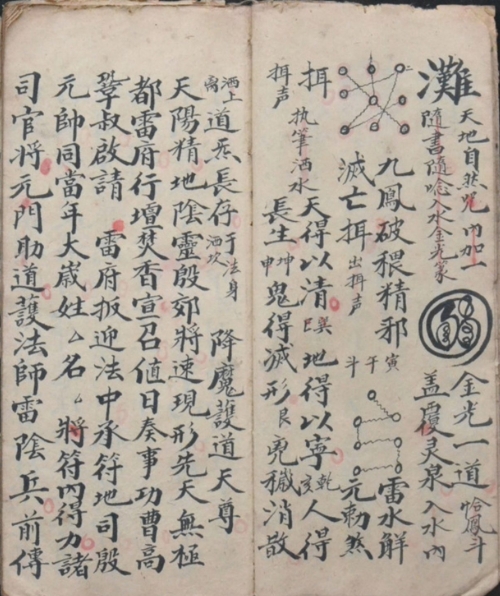 灘
天地自然咒內加一
隨書隨唸入水金光篆
金光一道 恰鳳斗
蓋覆灵泉入水內
九鳳破穢精邪 寅午斗 雷水解
滅亡挕 出挕声 元勅煞
挕 执筆洒水 天得以清 巽 地得以寧 乾亥 人得
挕声 長生 坤申 鬼得滅形 艮 兇穢消散
洒上离 道炁長存 于法身洒坎 降魔護道天尊
天陽精地陰靈殷郊將速現形先天無極
都雷府行壇焚香宣召値日奏事功曹高
鞏叔啟請 雷府扳迎法中承符地司殷
元帥同當年大歲姓厶名厶將符內得力諸
司官將元門助道護法師雷陰兵前傳